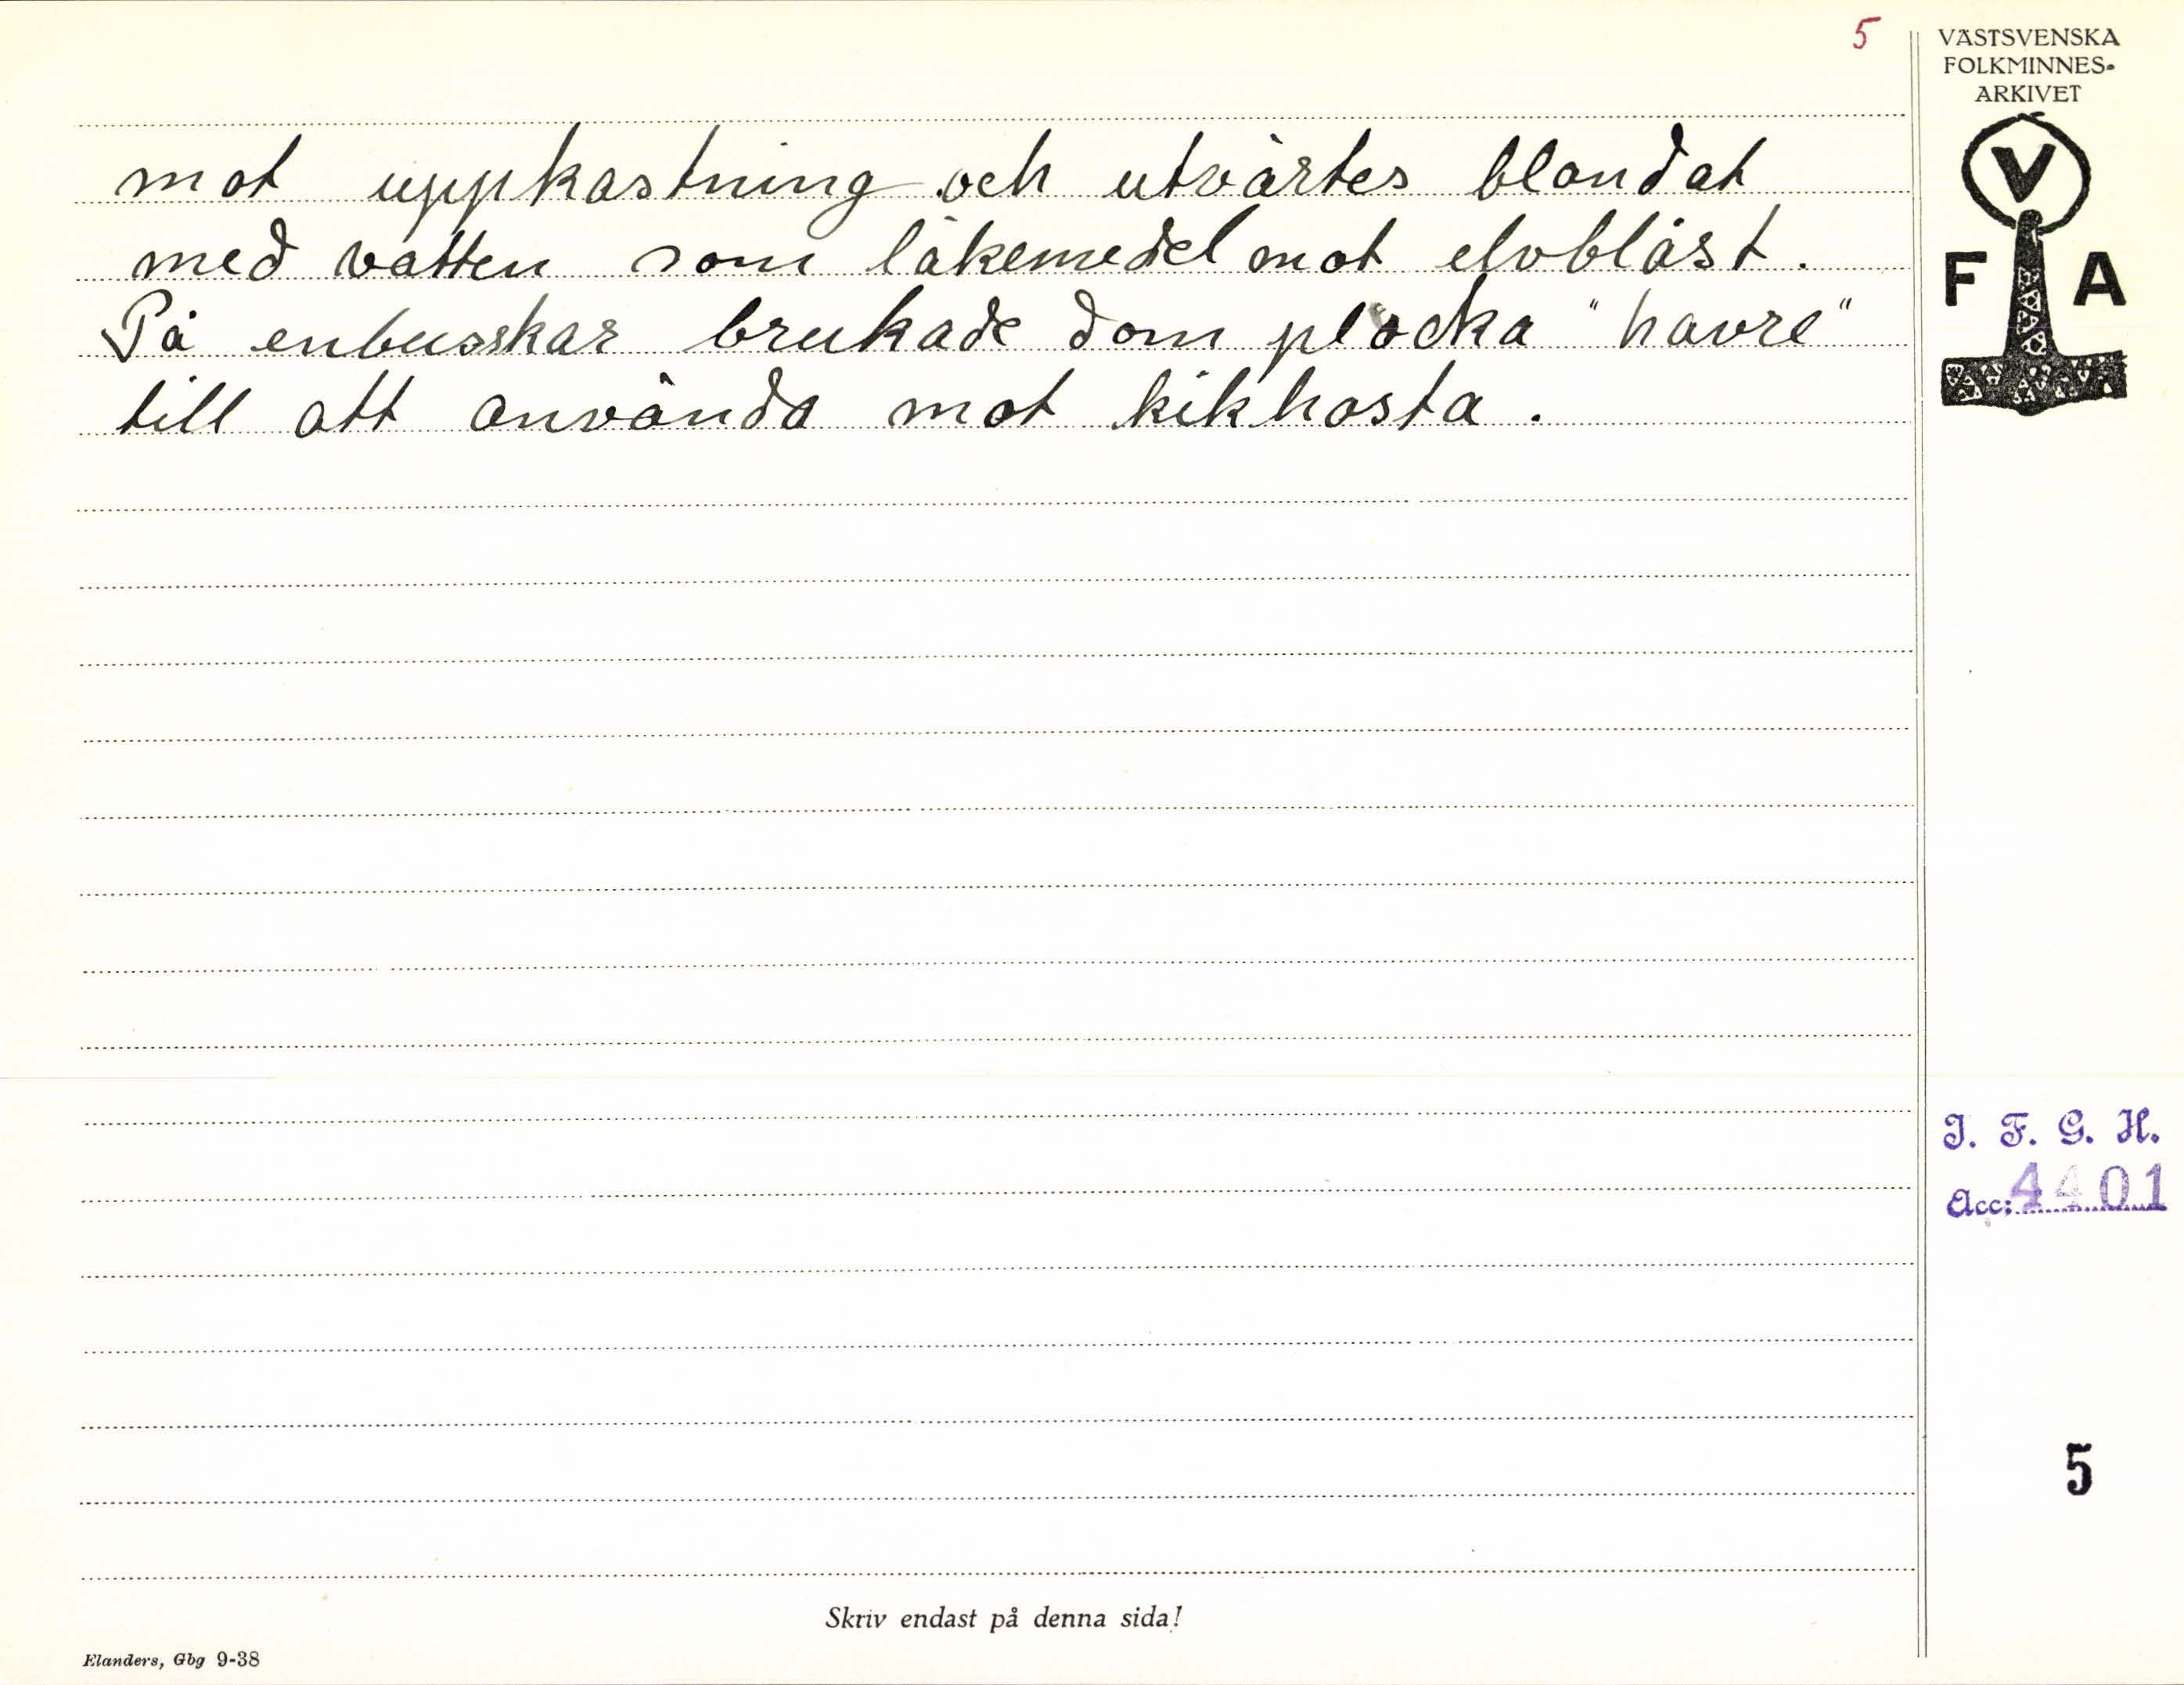 5
VÄSTSVENSKA
FOLKMINNES-
ARKIVET
V
F A
mot uppkastning och utvärtes blandat
med vatten som läkemedel mot elvbläst.
På enbusskar brukade dom plocka "havre"
till att använda mot kikhosta.
I. F. G. H.
Acc: 4401
5
Skriv endast på denna sida!
Elanders, Gbg 9-38